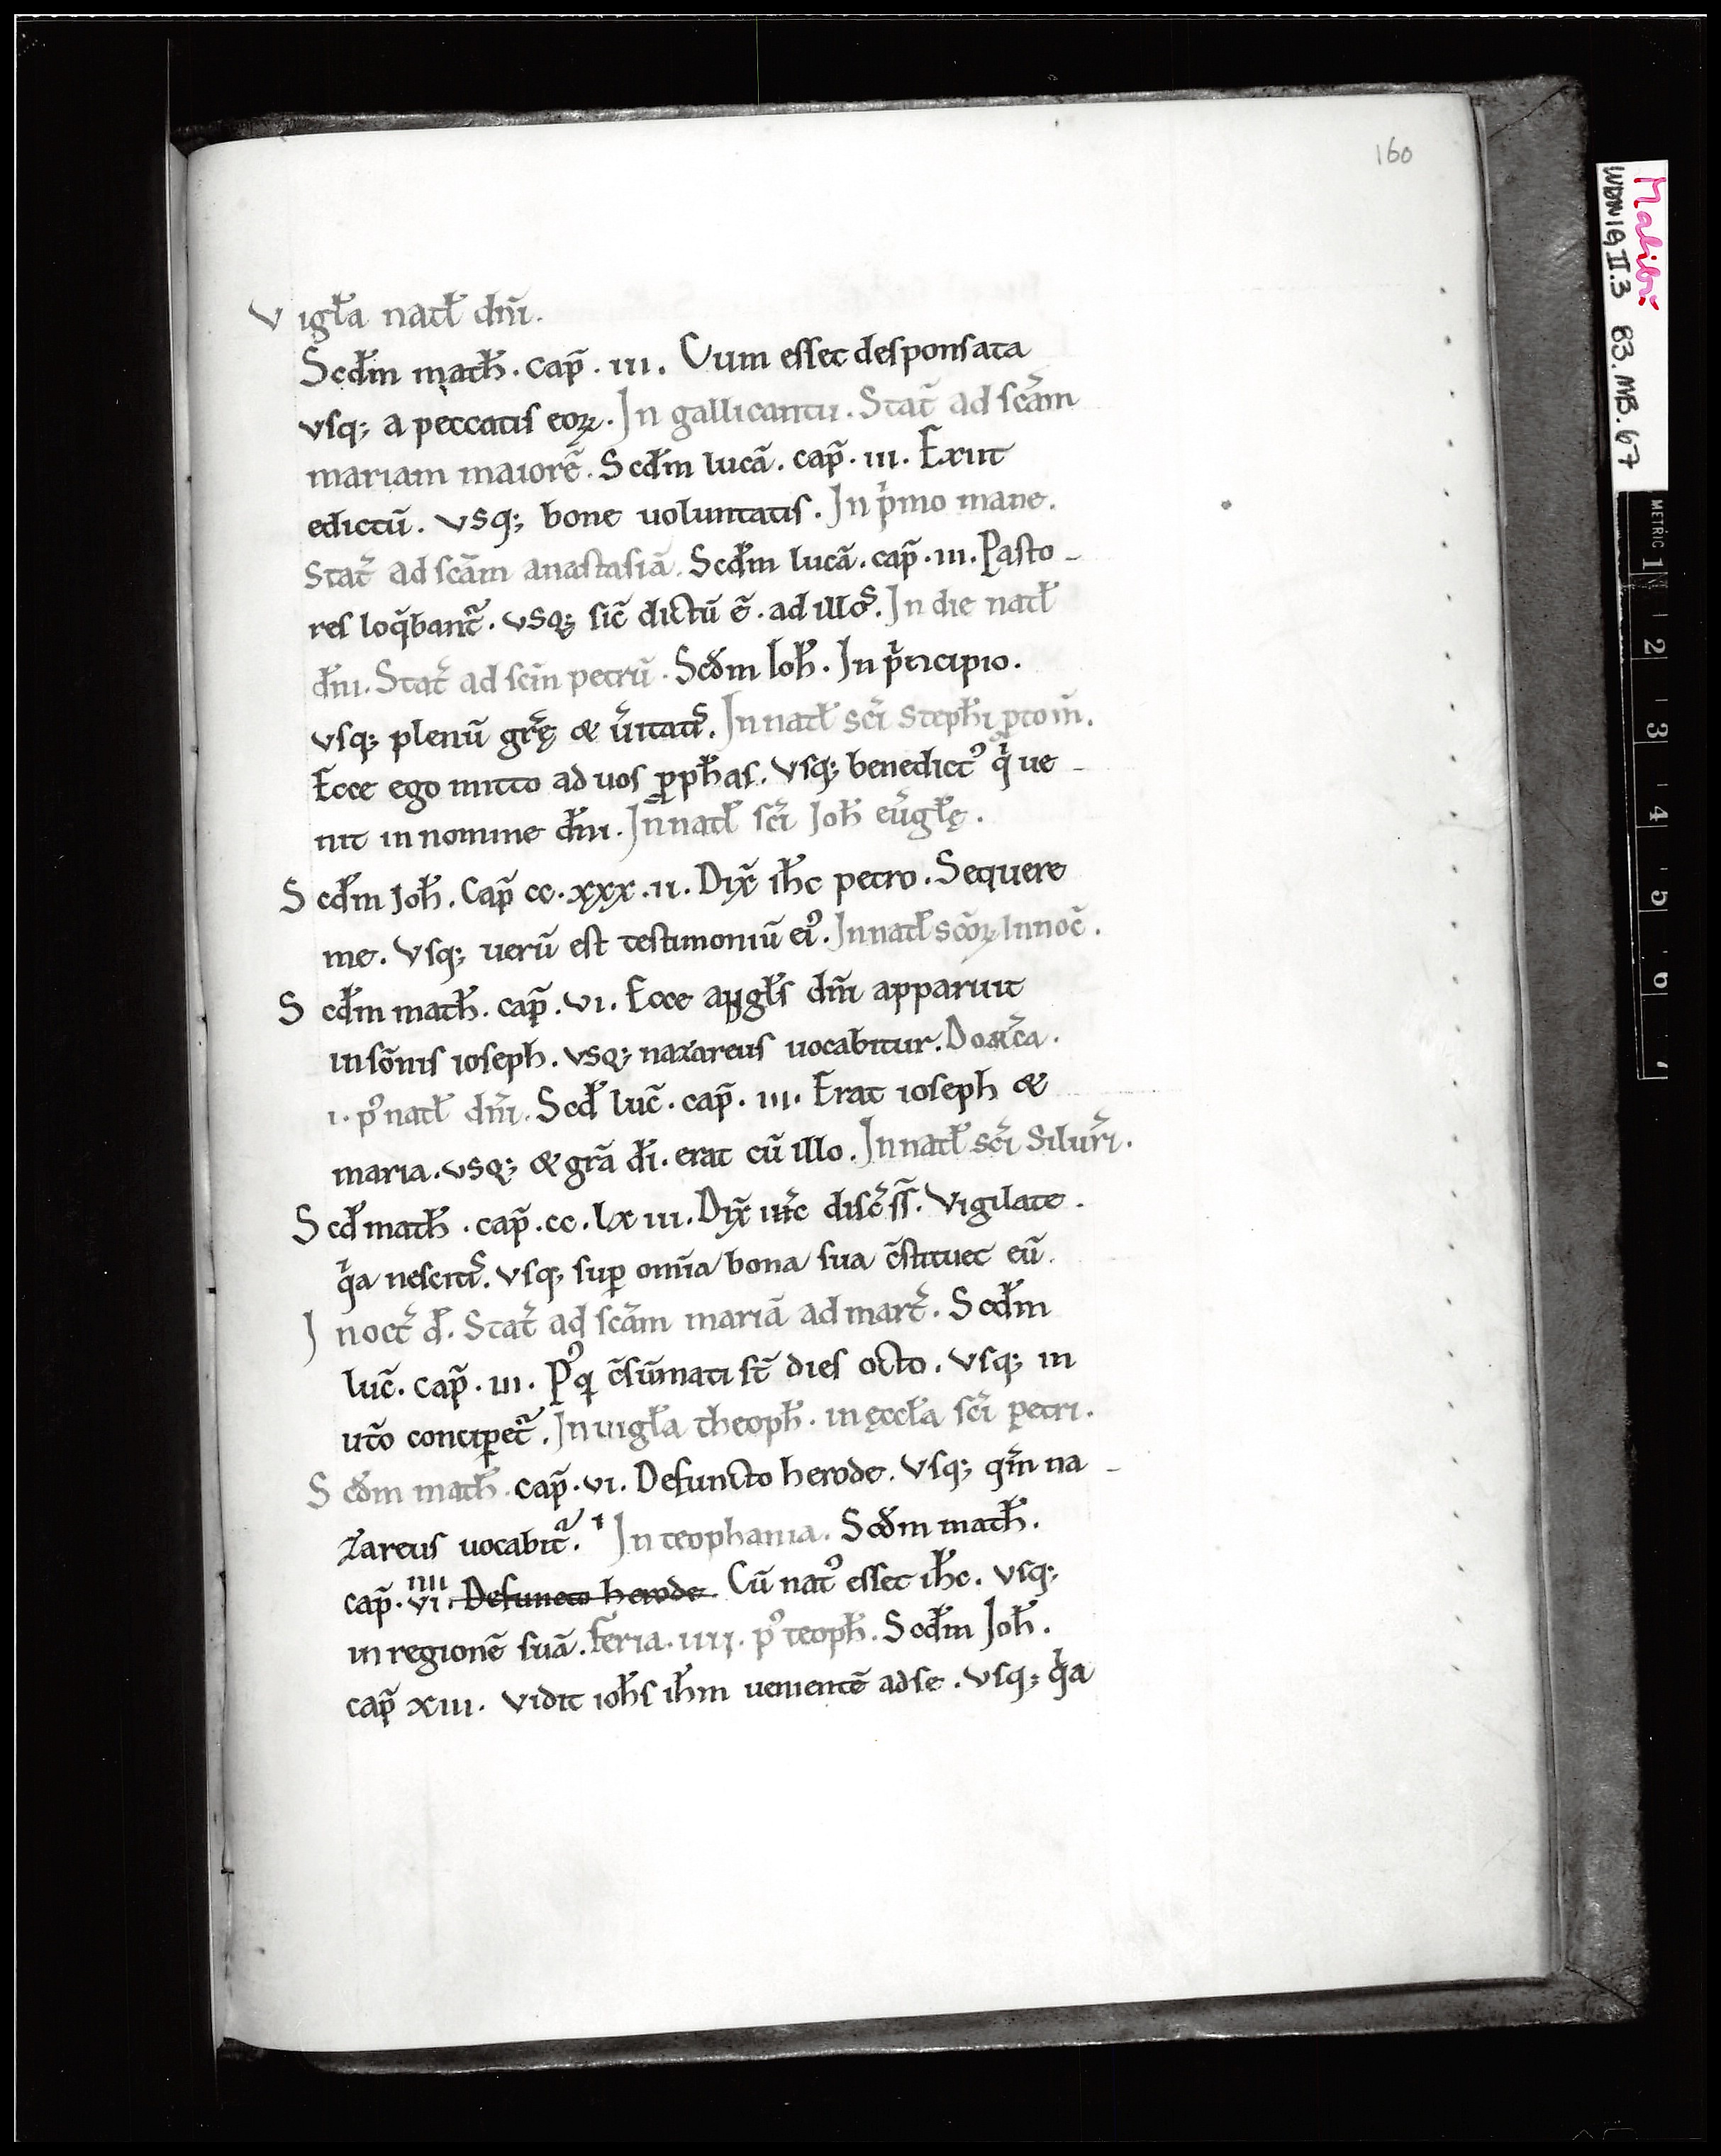 160
Vigła natł dñi.
Scđm matħ. cap̃. III. Cum essec desponsata
vsq; a peccatis eoꝝ. In gallicantu. Stat̃ ad sc̃am
mariam maiorẽ. Scđm lucã. cap̃. III. Exiit
edictũ. vsq; bone uoluntatis. In p̃mo mane.
Stat̃ ad sc̃am anastasiã. Scđm lucã. cap̃. III. Pasto-
res loq̃bant᷑. vsq; sic̃ dictũ ẽ. ad illos. In die natł
dñi. Stat̃ ad sc̃m petrũ. Scđm Ioħ. In p̃ncipio.
vsq; plenũ gr̃ę & ũitatis. In natł sc̃i stepħi ptom̃.
Ecce ego mitto ad uos ꝓpħas. vsq; benedictꝰ q̃ ue-
nit in nomine dñi. In natł sc̃i Ioħ eũgłę.
Scđm Joħ. Cap̃ cc.xxx.II. Dix̃ iħc petro. Sequere
me. Vsq; uerũ est testimoniũ eiꝰ. In natł sc̃oꝝ Innoc̃.
Scđm matħ. cap̃. VI. Ecce angłs dñi apparuit
in sõnis ioseph. vsq; nazareus uocabitur. Doм̃ca.
I. pꝰ natł dñi. Scđ luc̃. cap̃. III. Erat ioseph &
maria. vsq; & gr̃a đi. erat cũ illo. In natł sc̃i Silur̃i.
Scđ matħ. cap̃. cc. lx III. Dix̃ iħc disc̃ ss̃. Vigilate.
q̃a nescitis. vsq; suꝑ om̃ia bona sua c̃stituet eũ.
In oct̃ đ. Stat̃ ad sc̃am mariã ad mart̃. Scđm
luc̃. cap̃. III. Pꝰq c̃sũmati st̃ dies octo. vsq; in
ut̃o conciꝑet᷑. In uigła theopħ. in ęccła sc̃i petri.
Scđm matħ. cap̃. VI. Defuncto herode. Vsq; qm̃ na-
zareus uocabit᷑. In teophania. Scđm matħ.
cap̃. IIII VI. Defuncto herode. Cũ natꝰ essec iħc. vsq;
in regionẽ suã. feria. IIII. pꝰ teopħ. Scđm Joħ.
cap̃ XIII. Vidit ioħs iħm uenientẽ ad se. vsq; q̃a
Malibu
WDNIG II.3 83.MB.67
METRIC 1 2 3 4 5 6 7